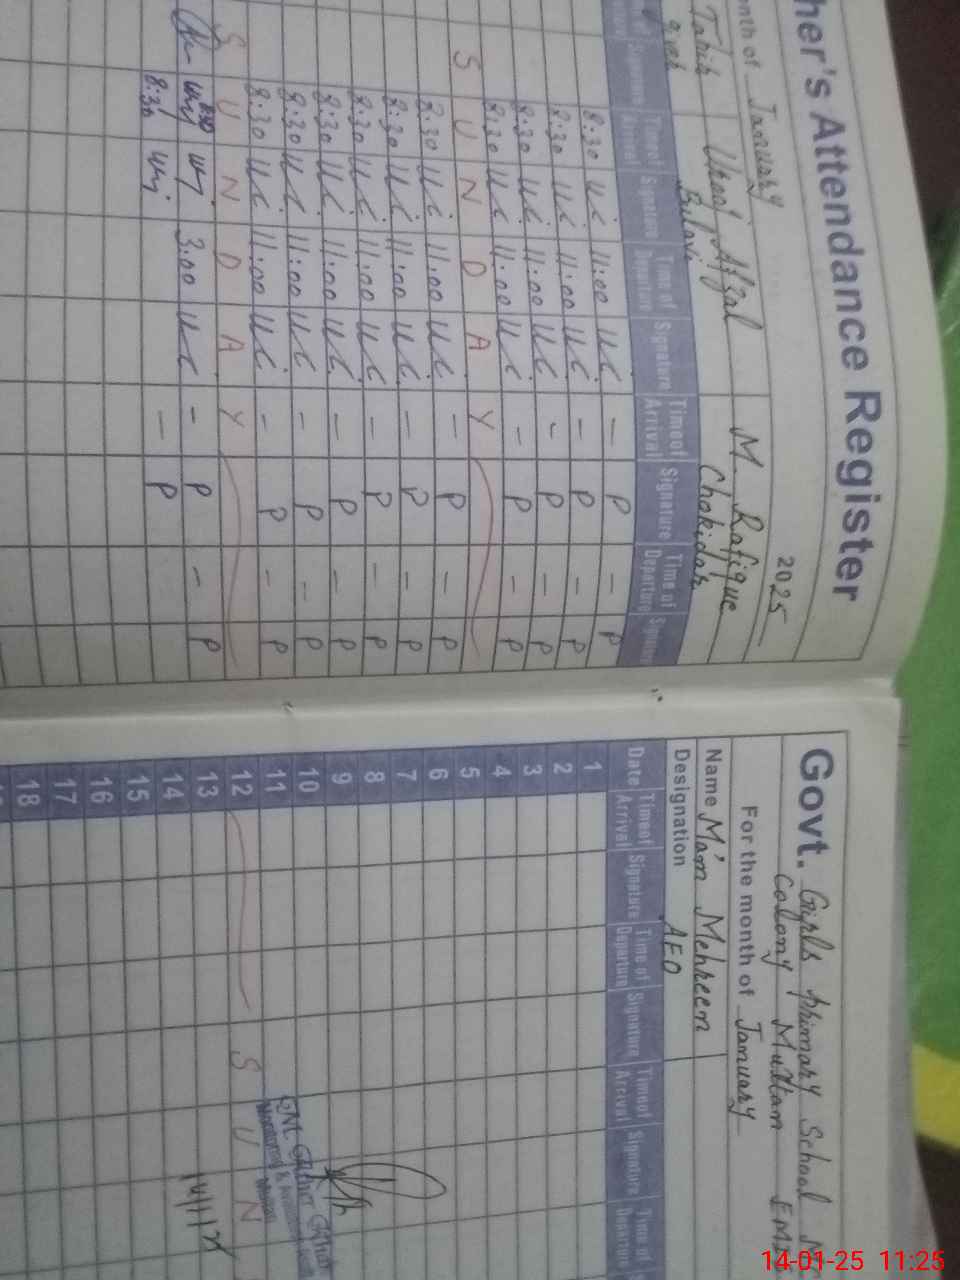 her's Attendance Register
onth of January 2025
Tahir Uzair Afzal M. Rafique
Chokidar
Timeof Arrival Signature Time of Departure Signature Timeof Arrival Signature Time of Departure Signature
8:30 UC 11:00 UC - P - P
8:30 UC 11:00 UC - P - P
8:30 UC 11:00 UC - P - P
8:30 UC 11:00 UC - P - P
S U N D A Y
8:30 UC 11:00 UC - P - P
8:30 UC 11:00 UC - P - P
8:30 UC 11:00 UC - P - P
8:30 UC 11:00 UC - P - P
8:30 UC 11:00 UC - P - P
8:30 UC 11:00 UC - P - P
S U N D A Y
3:00 UC - P - P
8:30 - P
Govt. Girls primary School
Colony Multan EMIS
For the month of January
Name Mam Mehreen
Designation AEO
Date Timeof Arrival Signature Time of Departure Signature Timeof Arrival Signature Time of Departure
1
2
3
4
5
6
7
8
9
10
11
12 S U N
13 14/1/25
14
15
16
17
18
14-01-25 11:25